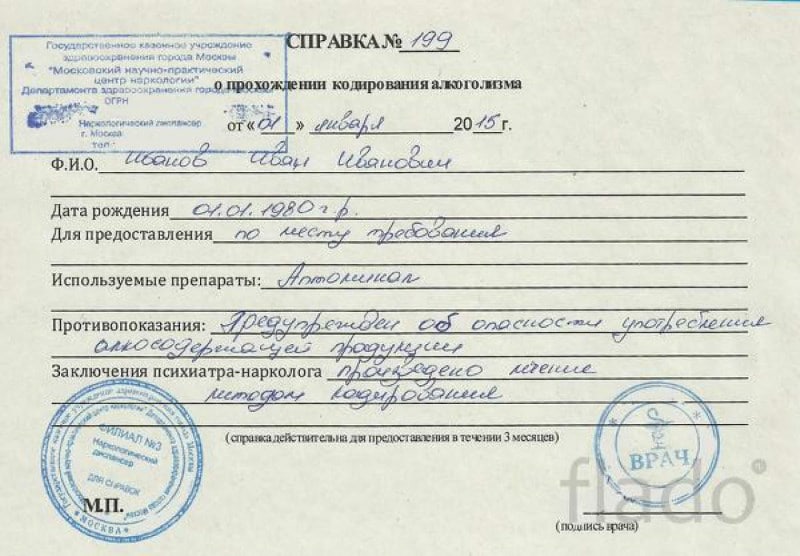 Государственное казенное учреждение
здравоохранения города Москвы
"Московский научно-практический
центр наркологии"
Департамента здравоохранения города Москвы
ОГРН
Наркологический диспансер
г. Москва
тел.:
СПРАВКА № 199
о прохождении кодирования алкоголизма
от «01» января 2015 г.
Ф.И.О. Иванов Иван Иванович
Дата рождения 01.01.1980 г.р.
Для предоставления по месту требования
Используемые препараты:
Противопоказания: Предупрежден об опасности употребления
алкосодержащей продукции
Заключения психиатра-нарколога произведено лечение
методом кодирования
(справка действительна для предоставления в течении 3 месяцев)
ФИЛИАЛ №3
Наркологический
диспансер
ДЛЯ СПРАВОК
* МОСКВА *
М.П.
ВРАЧ
flado
(подпись врача)